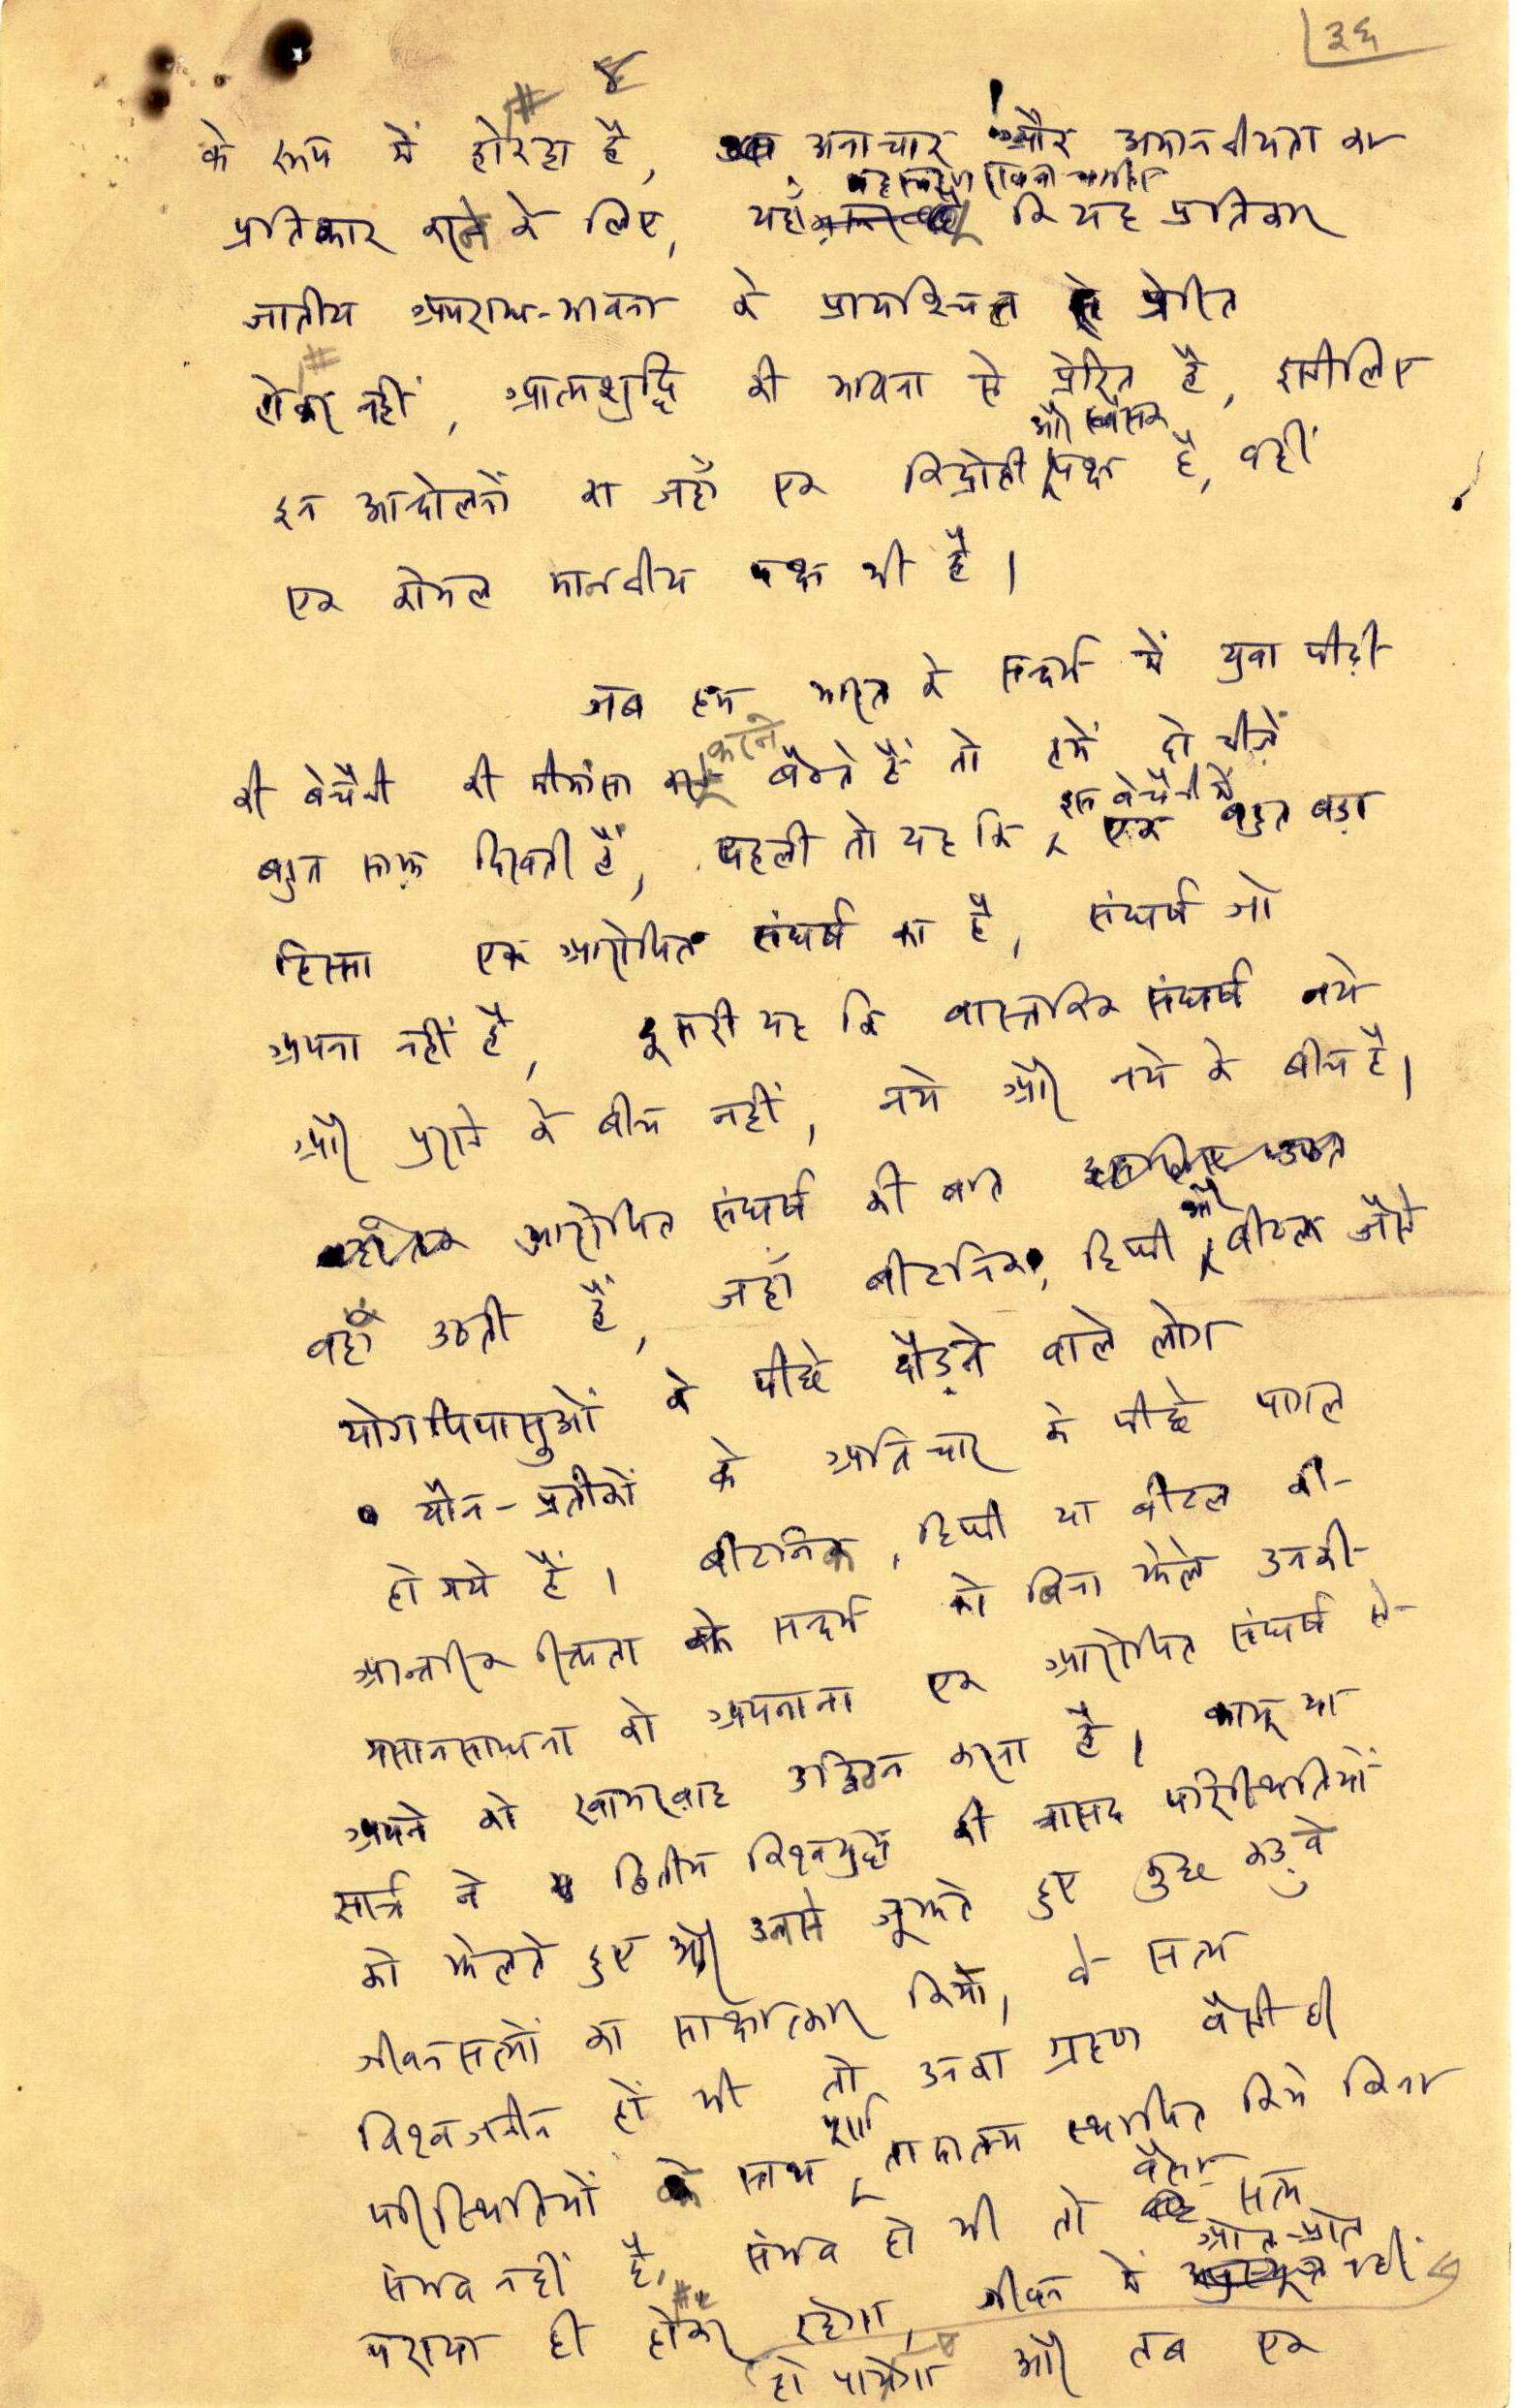 ३६
४
के रूप में हो रहा है, अनाचार और अमानवीयता का
प्रतिकार करने के लिए, यहाँ कि यह प्रतिकार
जातीय अपराध-भावना के प्रायश्चित्त से प्रेरित
होकर नहीं, आत्मशुद्धि की भावना से प्रेरित है, इसीलिए
इन आन्दोलनों का जहाँ एक विद्रोही और ध्वंसक पक्ष है, वहीं
एक कोमल मानवीय पक्ष भी है।
जब हम भारत के सन्दर्भ में युवा पीढ़ी
की बेचैनी की मीमांसा करने बैठते हैं तो हमें दो चीज़ें
बहुत साफ़ दिखती हैं, पहली तो यह कि इस बेचैनी में एक बहुत बड़ा
हिस्सा एक आरोपित संघर्ष का है, संघर्ष जो
अपना नहीं है, दूसरी यह कि वास्तविक संघर्ष नये
और पुराने के बीच नहीं, नये और नये के बीच है।
आरोपित संघर्ष की बात
वहाँ उठती है, जहाँ बीटनिक, हिप्पी और बीटल जैसे
योगपिपासुओं के पीछे दौड़ने वाले लोग
यौन-प्रतीकों के अतिचार के पीछे पागल
हो गये हैं। बीटनिक, हिप्पी या बीटल की
आन्तरिक रिक्तता के सन्दर्भ को बिना झेले उनकी
मसानसाधना को अपनाना एक आरोपित संघर्ष से
अपने को खामख़ाह उद्विग्न करना है। कामू या
सार्त्र ने द्वितीय विश्वयुद्ध की त्रासद परिस्थितियों
को झेलते हुए और उनसे जूझते हुए कुछ कड़ुवे
जीवनसत्यों का साक्षात्कार किया, वे सत्य
विश्वजनीन हों भी तो उनका ग्रहण वैसी ही
परिस्थितियों के साथ पूरा तादात्म्य स्थापित किये बिना
संभव नहीं है, संभव हो भी तो वैसा सत्य
पराया ही होकर रहेगा, जीवन में ओत-प्रोत नहीं
हो पायेगा और तब एक